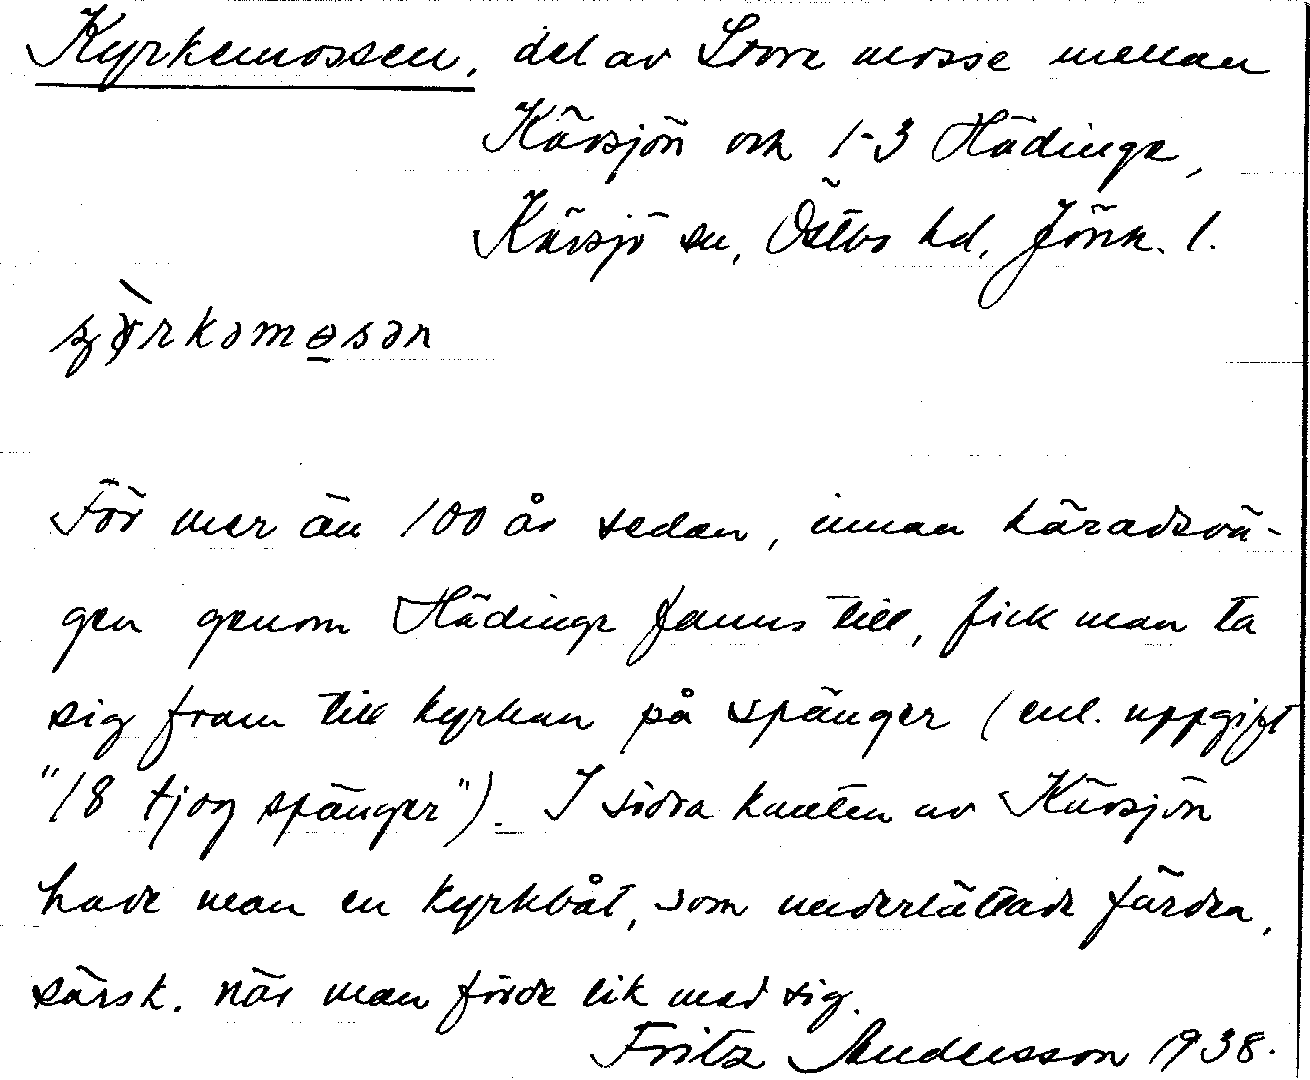 Kyrkemossen, del av Store mosse mellan
Kävsjön och 1-3 Hädinge,
Kävsjö sn, Östbo hd, Jönk. l.
För mer än 100 år sedan, innan häradsvä-
gen genom Hädinge fanns till, fick man ta
sig fram till kyrkan på spänger (enl. uppgift
"18 tjog spänger"). I södra kanten av Kävsjön
hade man en kyrkbåt, som underlättade färden,
särsk. när man förde lik med sig.
Fritz Andersson 1938.